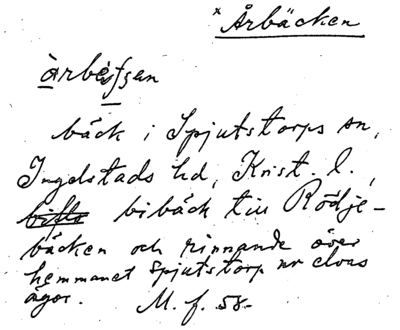 x Årbäcken
bäck i Spjutstorps sn,
Ingelstads hd, Krist. l.,
bibäck till Rödje-
bäcken och rinnande över
hemmanet Spjutstorp nr elvas
ägor. M. f. 58.